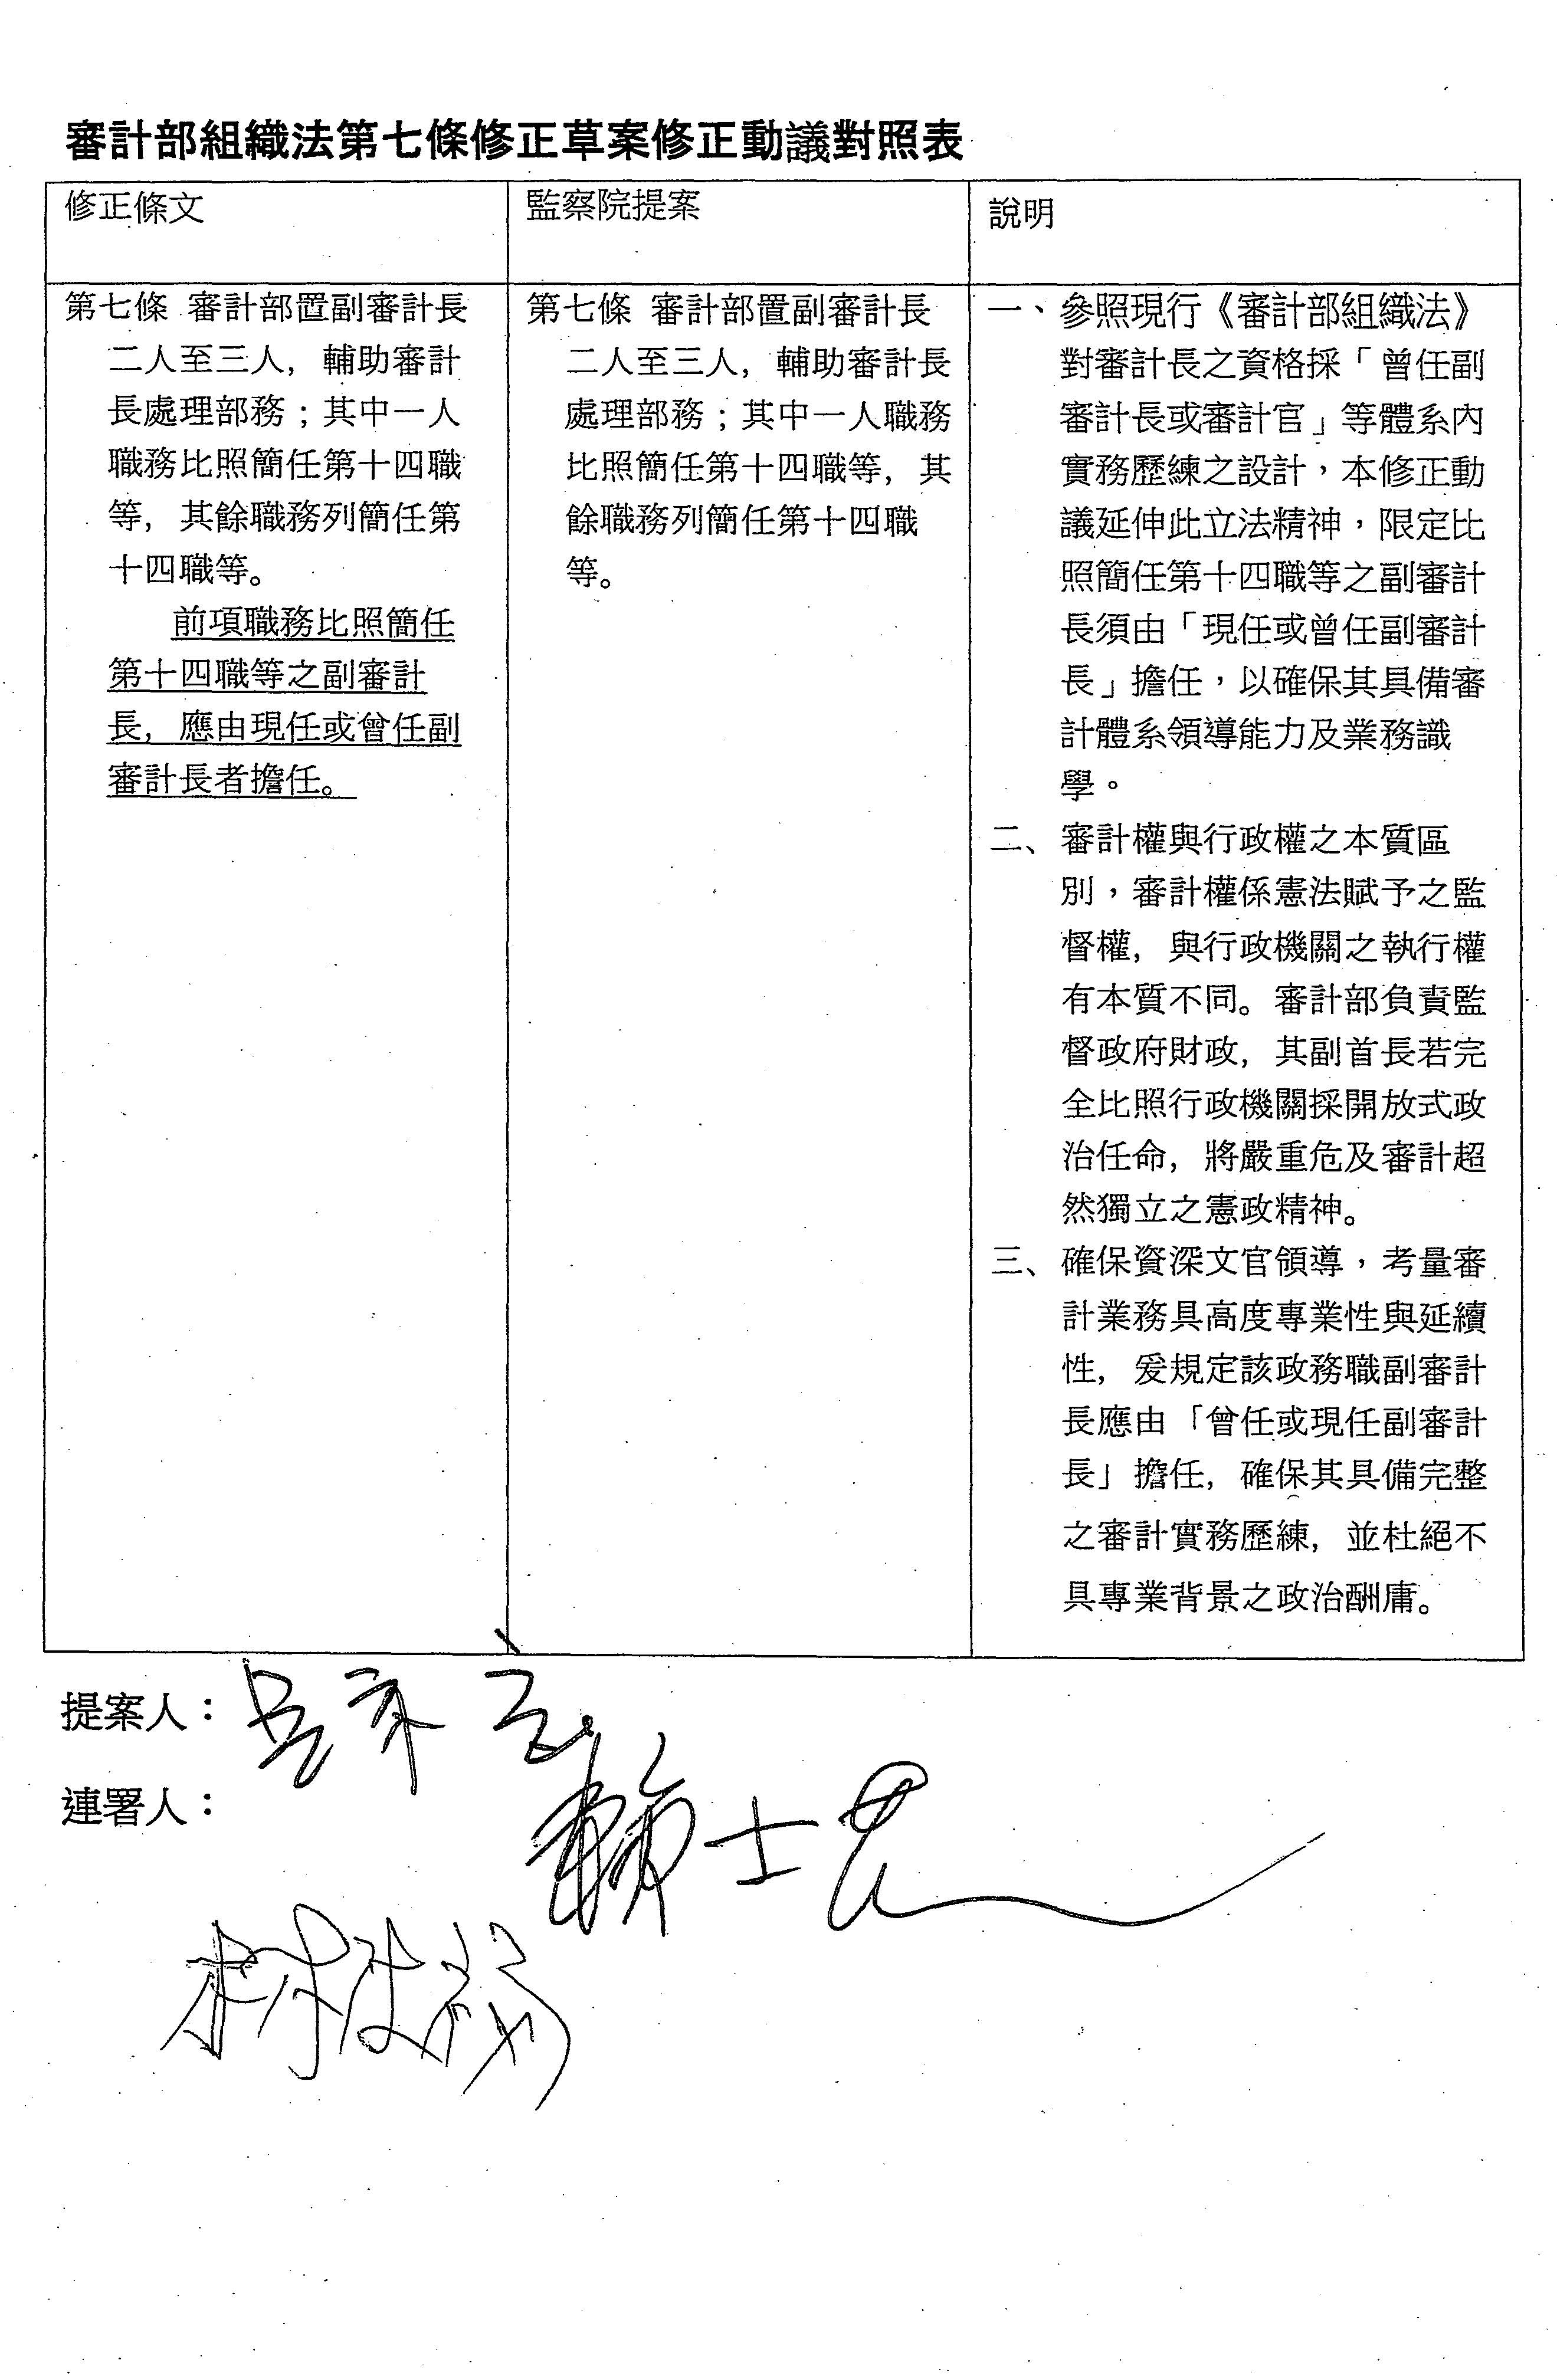 審計部組織法第七條修正草案修正動議對照表
修正條文
監察院提案
說明
第七條 審計部置副審計長
二人至三人,輔助審計
長處理部務;其中一人
職務比照簡任第十四職
等,其餘職務列簡任第
十四職等。
前項職務比照簡任
第十四職等之副審計
長,應由現任或曾任副
審計長者擔任。
第七條 審計部置副審計長
二人至三人,輔助審計長
處理部務;其中一人職務
比照簡任第十四職等,其
餘職務列簡任第十四職
等。
一、參照現行《審計部組織法》
對審計長之資格採「曾任副
審計長或審計官」等體系內
實務歷練之設計,本修正動
議延伸此立法精神,限定比
照簡任第十四職等之副審計
長須由「現任或曾任副審計
長」擔任,以確保其具備審
計體系領導能力及業務識
學。
二、審計權與行政權之本質區
別,審計權係憲法賦予之監
督權,與行政機關之執行權
有本質不同。審計部負責監
督政府財政,其副首長若完
全比照行政機關採開放式政
治任命,將嚴重危及審計超
然獨立之憲政精神。
三、確保資深文官領導,考量審
計業務具高度專業性與延續
性,爰規定該政務職副審計
長應由「曾任或現任副審計
長」擔任,確保其具備完整
之審計實務歷練,並杜絕不
具專業背景之政治酬庸。
提案人:
連署人: